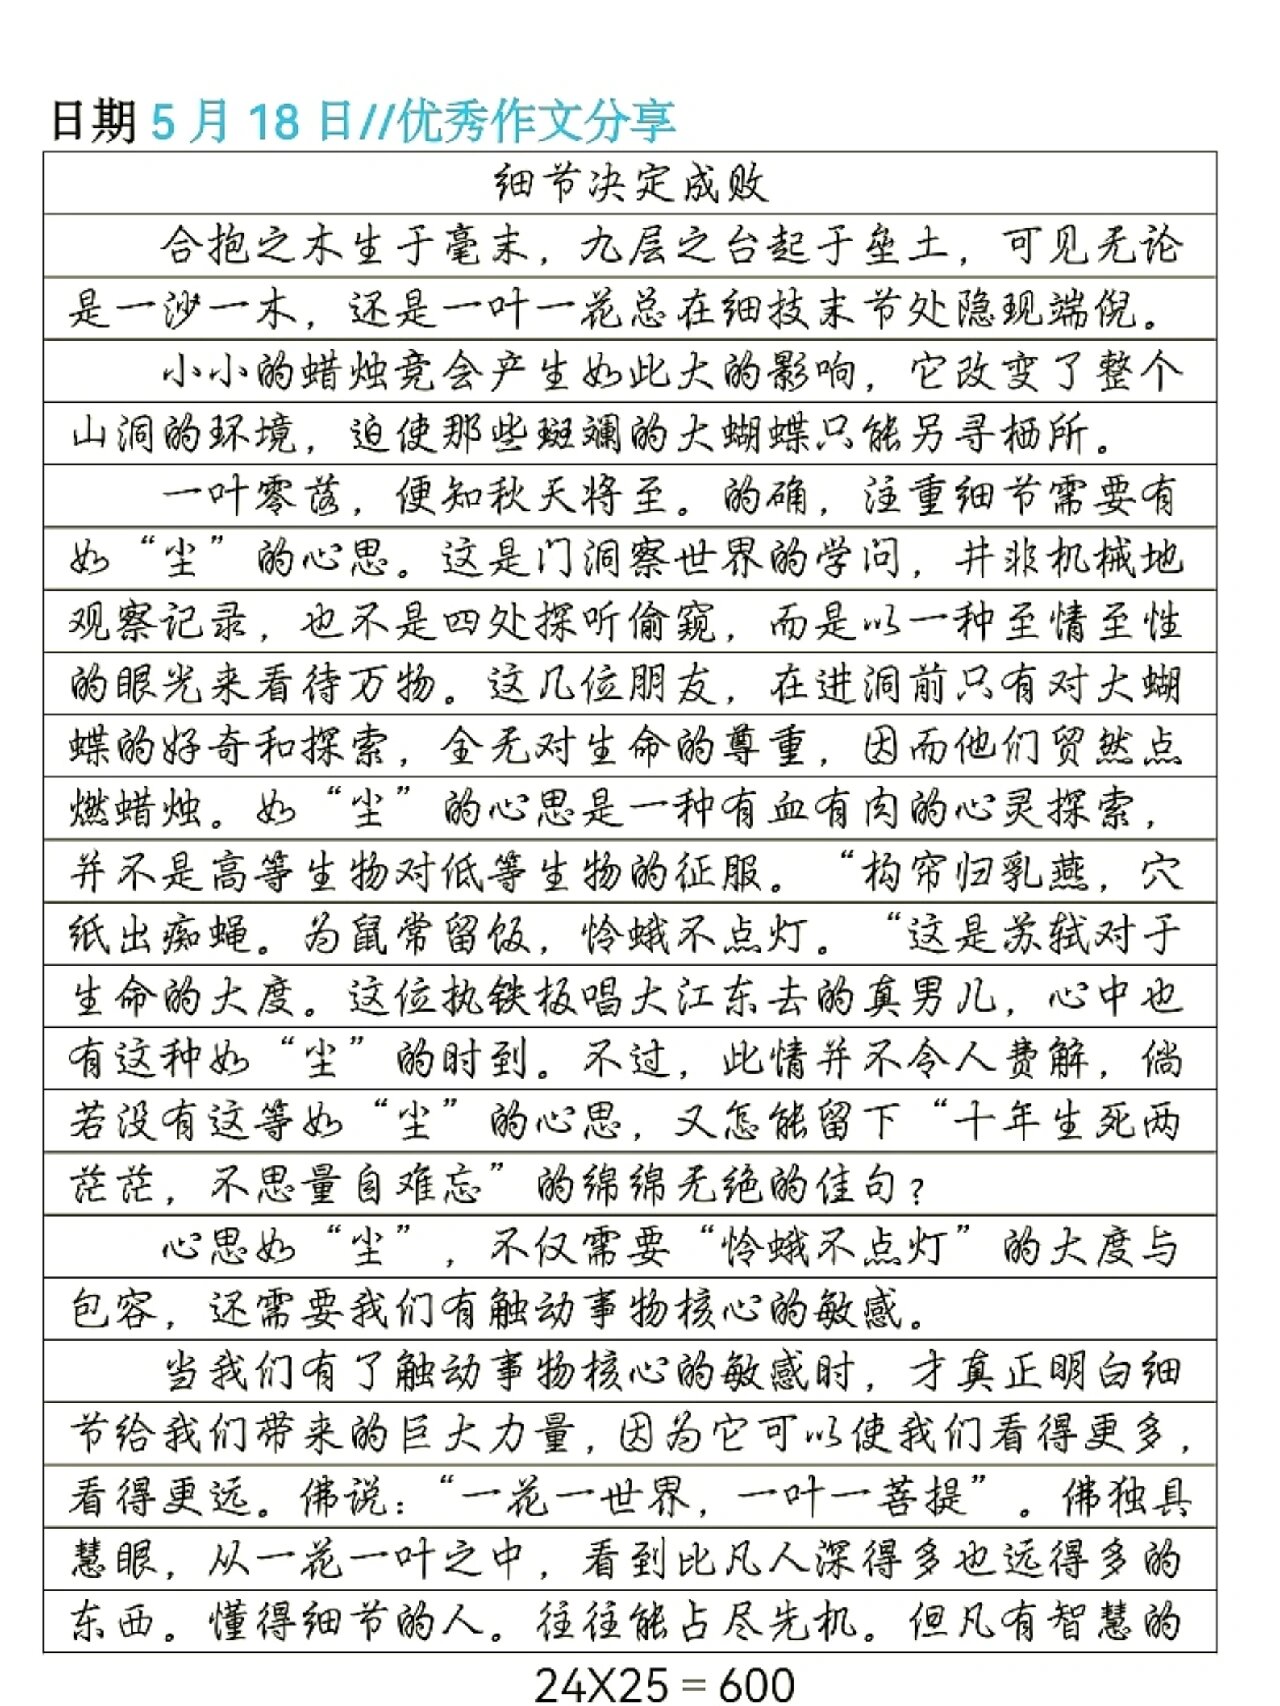 日期 5 月 18 日//优秀作文分享
细节决定成败
合抱之木生于毫末，九层之台起于垒土，可见无论
是一沙一木，还是一叶一花总在细技末节处隐现端倪。
小小的蜡烛竟会产生如此大的影响，它改变了整个
山洞的环境，迫使那些斑斓的大蝴蝶只能另寻栖所。
一叶零落，便知秋天将至。的确，注重细节需要有
如“尘”的心思。这是门洞察世界的学问，并非机械地
观察记录，也不是四处探听偷窥，而是以一种至情至性
的眼光来看待万物。这几位朋友，在进洞前只有对大蝴
蝶的好奇和探索，全无对生命的尊重，因而他们贸然点
燃蜡烛。如“尘”的心思是一种有血有肉的心灵探索，
并不是高等生物对低等生物的征服。“构帘归乳燕，穴
纸出痴蝇。为鼠常留饭，怜蛾不点灯。“这是苏轼对于
生命的大度。这位执铁板唱大江东去的真男儿，心中也
有这种如“尘”的时到。不过，此情并不令人费解，倘
若没有这等如“尘”的心思，又怎能留下“十年生死两
茫茫，不思量自难忘”的绵绵无绝的佳句？
心思如“尘”，不仅需要“怜蛾不点灯”的大度与
包容，还需要我们有触动事物核心的敏感。
当我们有了触动事物核心的敏感时，才真正明白细
节给我们带来的巨大力量，因为它可以使我们看得更多，
看得更远。佛说：“一花一世界，一叶一菩提”。佛独具
慧眼，从一花一叶之中，看到比凡人深得多也远得多的
东西。懂得细节的人。往往能占尽先机。但凡有智慧的
24X25＝600